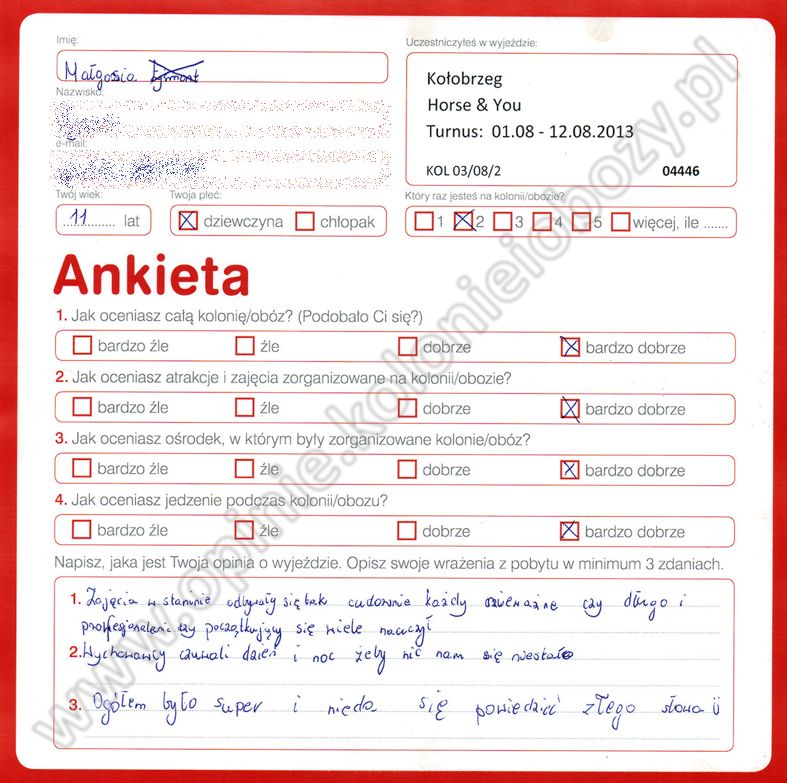 Imię:
Małgosia Egmont
Uczestniczyłeś w wyjeździe:
Kołobrzeg
Horse & You
Turnus: 01.08 - 12.08.2013
KOL 03/08/2 04446
Nazwisko:
e-mail:
Twój wiek:
11 lat
Twoja płeć:
dziewczyna chłopak
Który raz jesteś na kolonii/obozie?
1 2 3 4 5 więcej, ile .......
Ankieta
1. Jak oceniasz całą kolonię/obóz? (Podobało Ci się?)
bardzo źle źle dobrze bardzo dobrze
2. Jak oceniasz atrakcje i zajęcia zorganizowane na kolonii/obozie?
bardzo źle źle dobrze bardzo dobrze
3. Jak oceniasz ośrodek, w którym były zorganizowane kolonie/obóz?
bardzo źle źle dobrze bardzo dobrze
4. Jak oceniasz jedzenie podczas kolonii/obozu?
bardzo źle źle dobrze bardzo dobrze
Napisz, jaka jest Twoja opinia o wyjeździe. Opisz swoje wrażenia z pobytu w minimum 3 zdaniach.
1. Zajęcia w odbywały się tak cudownie każdy czy długo i
czy początkujący się wiele nauczył
2. Wychowawcy czuwali dzień i noc żeby nic nam się niestało
3. Ogółem było super i nieda się powiedzieć złego słowa
www.opinie.kolonieiobozy.pl